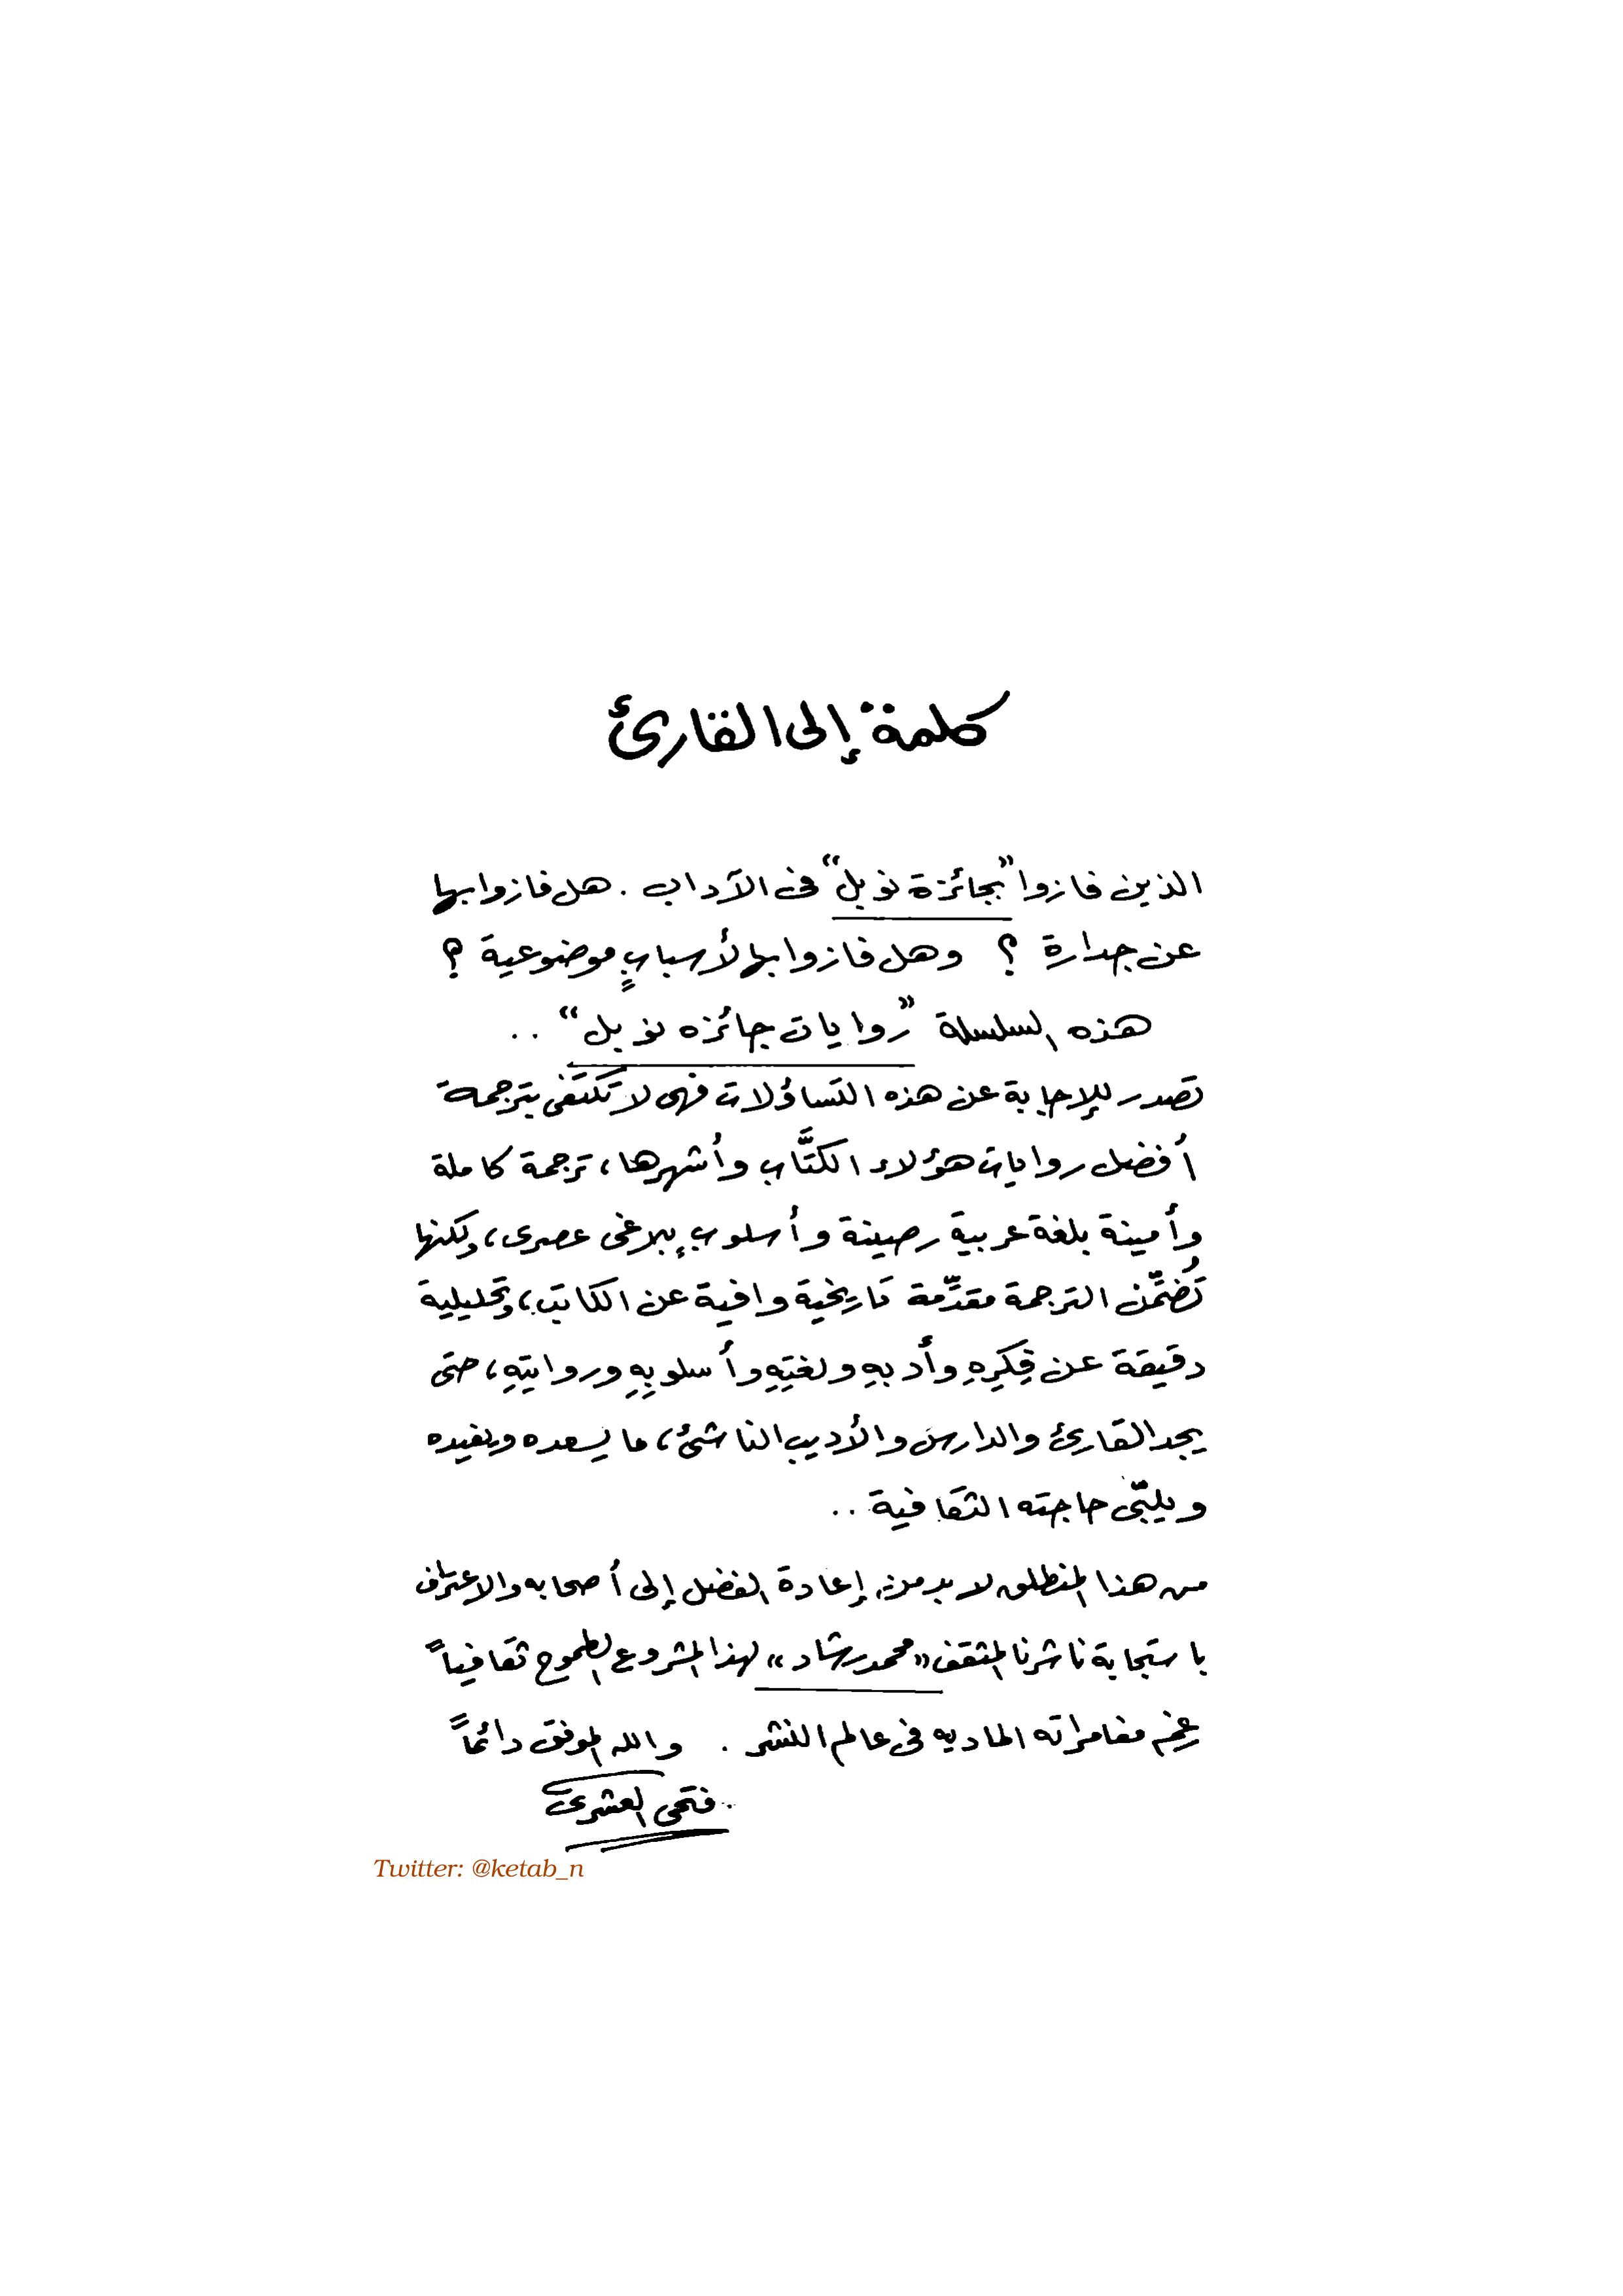 كلمة إلى القارئ
الذين فازوا "بجائزة نوبل" فى الآداب . هل فازوا بها
عن جدارة ؟ وهل فازوا بها لأسبابٍ موضوعية ؟
هذه السلسلة "روايات جائزه نوبل" ..
تصدر للإجابة عن هذه التساؤلات فهى لا تكتفى بترجمة
أفضل روايات هؤلاء الكتَّاب وأشهرها، ترجمة كاملة
وأمينة بلغة عربية رصينة وأسلوبٍ بلاغى عصرى، ولكنها
تُضمِّن الترجمة مقدِّمة تاريخية وافية عن الكاتب، وتحليلية
دقيقة عن فِكرِهِ وأدبهِ ولغتِهِ وأسلوبِهِ وروايتِهِ، حتى
يجد القارئ والدارس والأديب الناشئ، ما يسعده ويفيده
ويلبّى حاجته الثقافية ..
من هذا المنطلق لا بد من إعادة الفضل إلى أصحابه والاعتراف
باستجابة ناشرنا المثقف «محمد رشاد» لهذا المشروع الطموح ثقافياً
رغم مغامراته الماديه فى عالم النشر . والله الموفق دائماً
فتحى العشرى
Twitter: @ketab_n